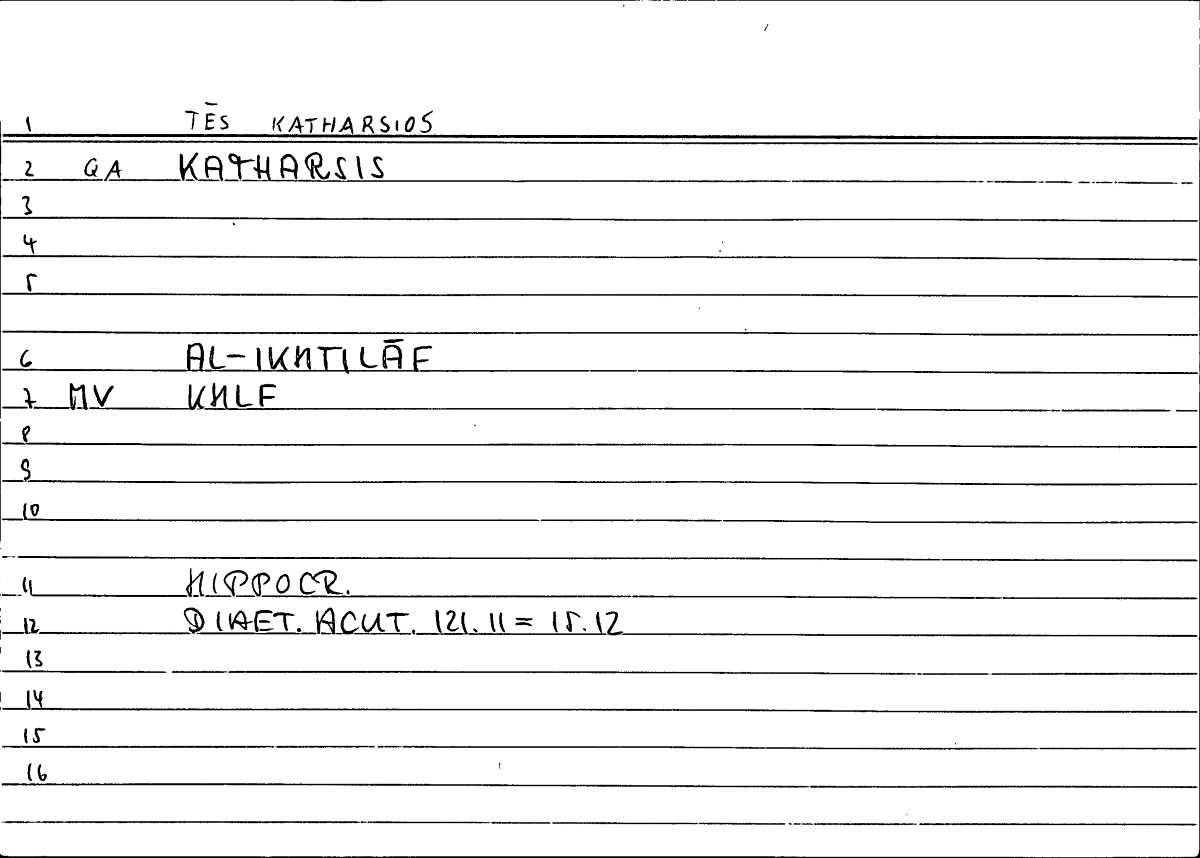 1 TĒS KATHARSIOS
2 QA KATHARSIS
3
4
5
6 AL-IKHTILĀF
7 MV KHLF
8
9
10
11 HIPPOCR.
12 DIAET. ACUT. 121.11 = 15.12
13
14
15
16